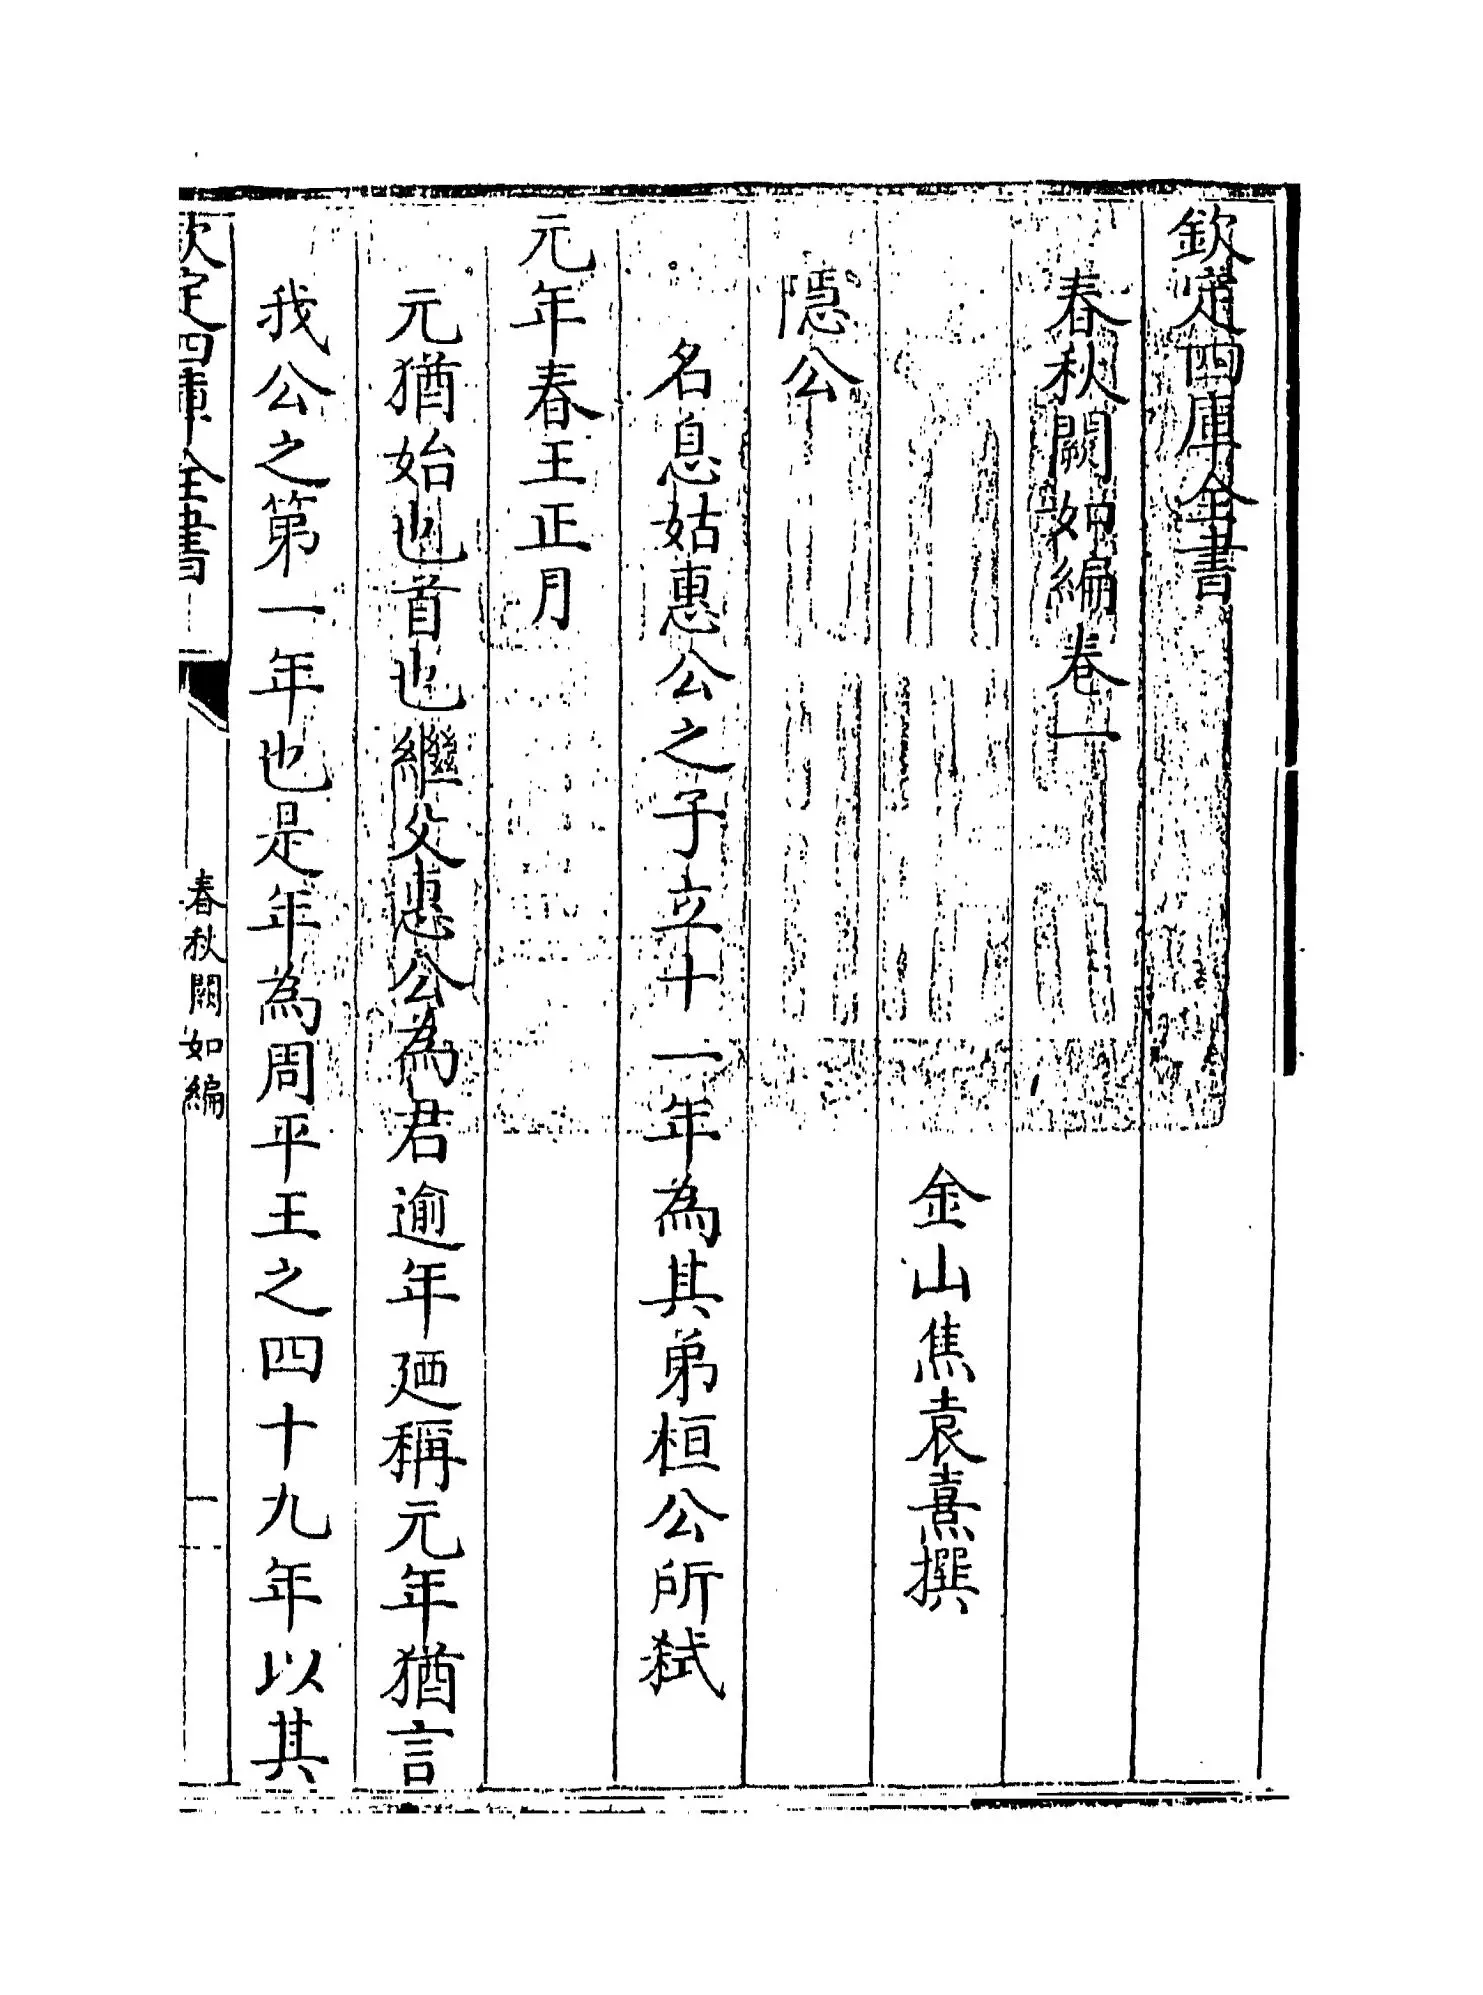 欽定四庫全書
春秋闕如編卷一
金山焦袁熹撰
隱公
名息姑惠公之子立十一年為其弟桓公所弑
元年春王正月
元猶始也首也繼父惠公為君逾年廼稱元年猶言
我公之第一年也是年為周平王之四十九年以其
欽定四庫全書
春秋闕如編
一